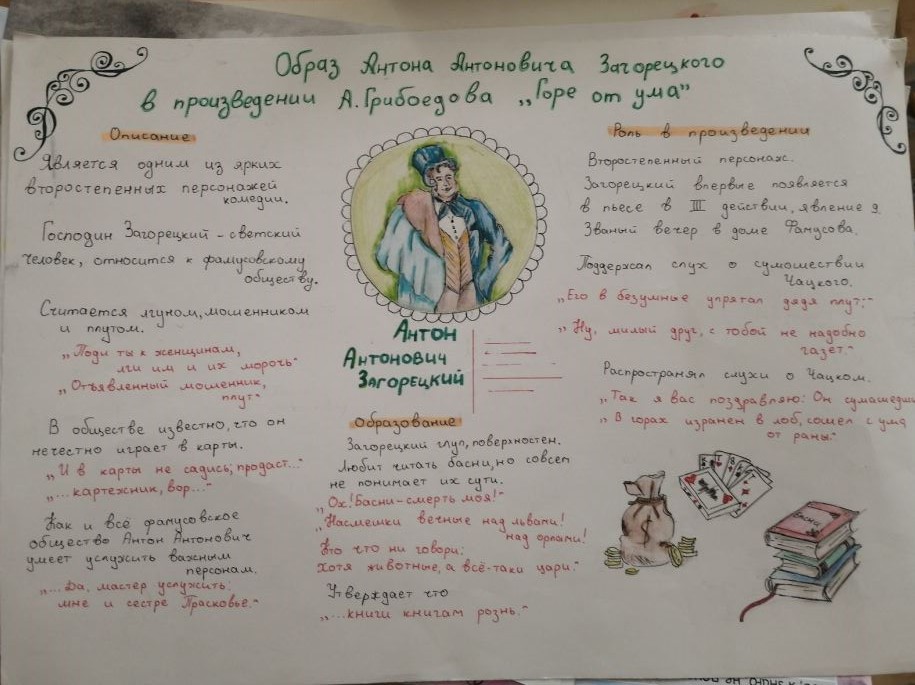 Образ Антона Антоновича Загорецкого
в произведении А. Грибоедова „Горе от ума"
Описание
Является одним из ярких
второстепенных персонажей
комедии.
Господин Загорецкий – светский
человек, относится к фамусовскому
обществу.
Считается лгуном, мошенником
и плутом.
„Поди ты к женщинам,
лги им и их морочь"
„Отъявленный мошенник,
плут"
В обществе известно, что он
нечестно играет в карты.
„И в карты не садись; продаст..."
„...картежник, вор..."
Как и всё фамусовское
общество Антон Антонович
умеет услужить важным
персонам.
„...Да, мастер услужить;
мне и сестре Прасковье."
Антон
Антонович
Загорецкий
Образование
Загорецкий глуп, поверхностен.
Любит читать басни, но совсем
не понимает их сути.
„Ох! Басни – смерть моя!"
„Насмешки вечные над львами!
над орлами!
Кто что ни говори:
Хотя животные, а всё-таки цари."
Утверждает что
„...книги книгам рознь."
Роль в произведении
Второстепенный персонаж.
Загорецкий впервые появляется
в пьесе в III действии, явление 9.
Званый вечер в доме Фамусова.
Поддержал слух о сумошествии
Чацкого.
„Его в безумные упрятал дядя плут;"
„Ну, милый друг, с тобой не надобно
газет."
Распространял слухи о Чацком.
„Так я вас поздравляю: Он сумашедши
„В горах изранен в лоб, сошел с ума
от раны."
Басни